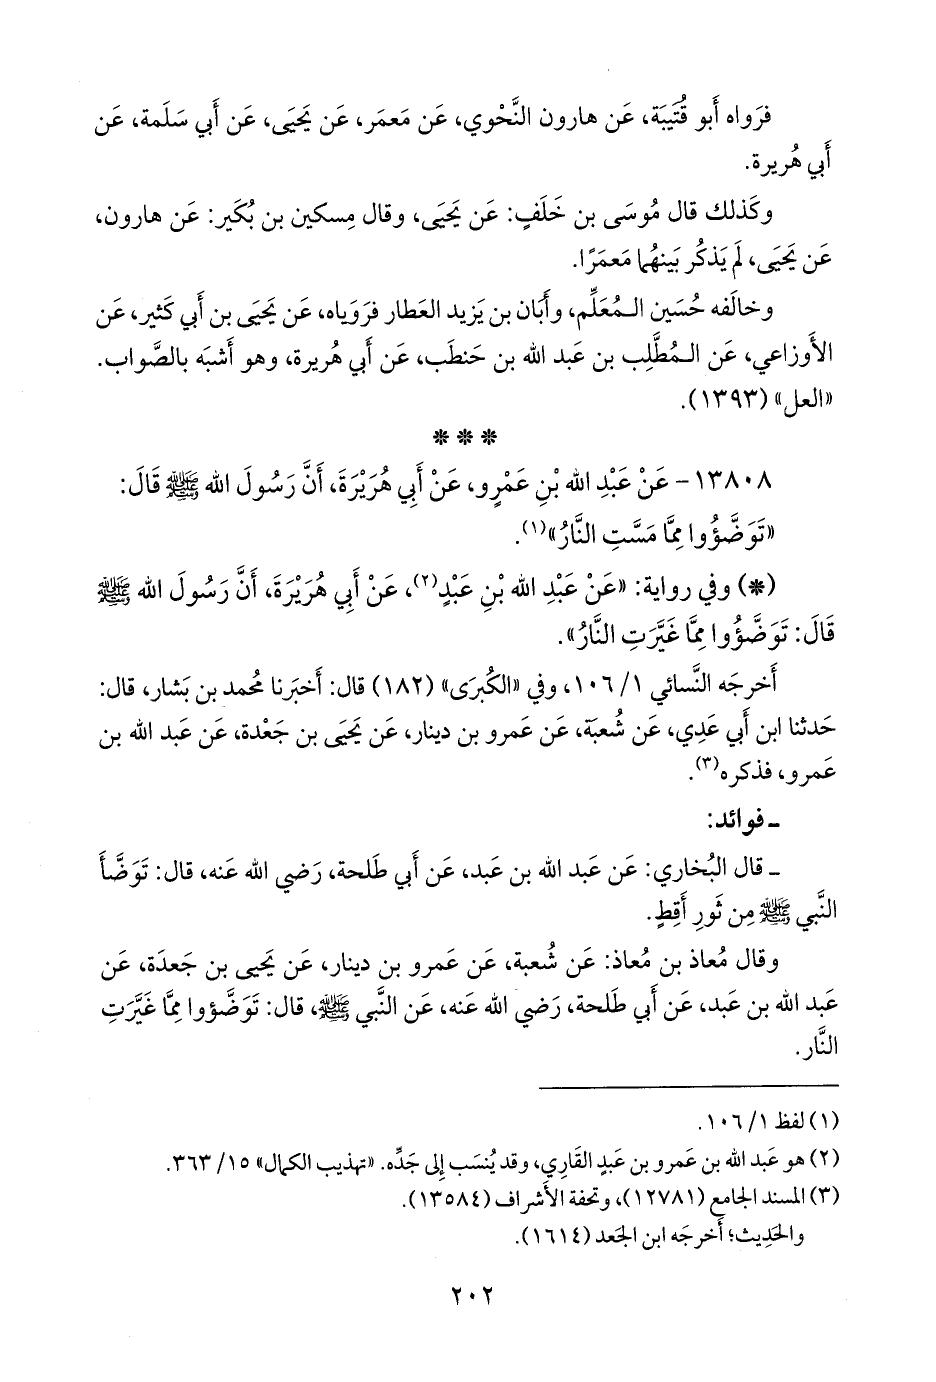 فرَواه أَبو قُتَيبَة، عَن هارون النَّحْوي، عَن مَعمَر، عَن يَحيَى، عَن أَبي سَلَمة، عَن
أَبي هُريرة.
وكَذلك قال مُوسَى بن خَلَفٍ: عَن يَحيَى، وقال مِسكين بن بُكَير: عَن هارون،
عَن يَحيَى، لَم يَذكُر بَينهُما مَعمَرًا.
وخالَفه حُسَين الـمُعَلِّم، وأَبَان بن يَزيد العَطار فرَوَياه، عَن يَحيَى بن أَبي كَثير، عَن
الأَوزاعي، عَن الـمُطَّلِب بن عَبد الله بن حَنطَب، عَن أَبي هُريرة، وهو أَشبَه بالصَّواب.
«العلل» (١٣٩٣).
* * *
١٣٨٠٨- عَنْ عَبْدِ الله بْنِ عَمْرٍو، عَنْ أَبِي هُرَيْرَةَ، أَنَّ رَسُولَ الله ﷺ قَالَ:
«تَوَضَّؤُوا مِمَّا مَسَّتِ النَّارُ»(١).
(*) وفي رواية: «عَنْ عَبْدِ الله بْنِ عَبْدٍ(٢)، عَنْ أَبِي هُرَيْرَةَ، أَنَّ رَسُولَ الله ﷺ
قَالَ: تَوَضَّؤُوا مِمَّا غَيَّرَتِ النَّارُ».
أَخرجَه النَّسائي ١/ ١٠٦، وفي «الكُبرَى» (١٨٢) قال: أَخبَرنا مُحمد بن بَشار، قال:
حَدثنا ابن أَبي عَدِي، عَن شُعبَة، عَن عَمرو بن دينار، عَن يَحيَى بن جَعْدة، عَن عَبد الله بن
عَمرو، فذكره(٣).
ـ فوائد:
ـ قال البُخاري: عَن عَبد الله بن عَبد، عَن أَبي طَلحة، رَضي الله عَنه، قال: تَوَضَّأَ
النَّبي ﷺ مِن ثَورِ أَقِطٍ.
وقال مُعاذ بن مُعاذ: عَن شُعبة، عَن عَمرو بن دينار، عَن يَحيى بن جَعدَة، عَن
عَبد الله بن عَبد، عَن أَبي طَلحة، رَضي الله عَنه، عَن النَّبي ﷺ، قال: تَوَضَّؤوا مِمَّا غَيَّرَتِ
النَّار.
(١) لفظ ١/ ١٠٦.
(٢) هو عَبد الله بن عَمرو بن عَبدٍ القَاري، وقد يُنسَب إِلى جَدِّه. «تهذيب الكمال» ١٥/ ٣٦٣.
(٣) المسند الجامع (١٢٧٨١)، وتحفة الأشراف (١٣٥٨٤).
والحَدِيث؛ أَخرجَه ابن الجَعد (١٦١٤).
٢٠٢